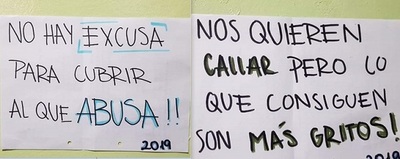 NO HAY EXCUSA
PARA CUBRIR
AL QUE ABUSA!!
2019
NOS QUIEREN
CALLAR PERO LO
QUE CONSIGUEN
SON MÁS GRITOS!
2019